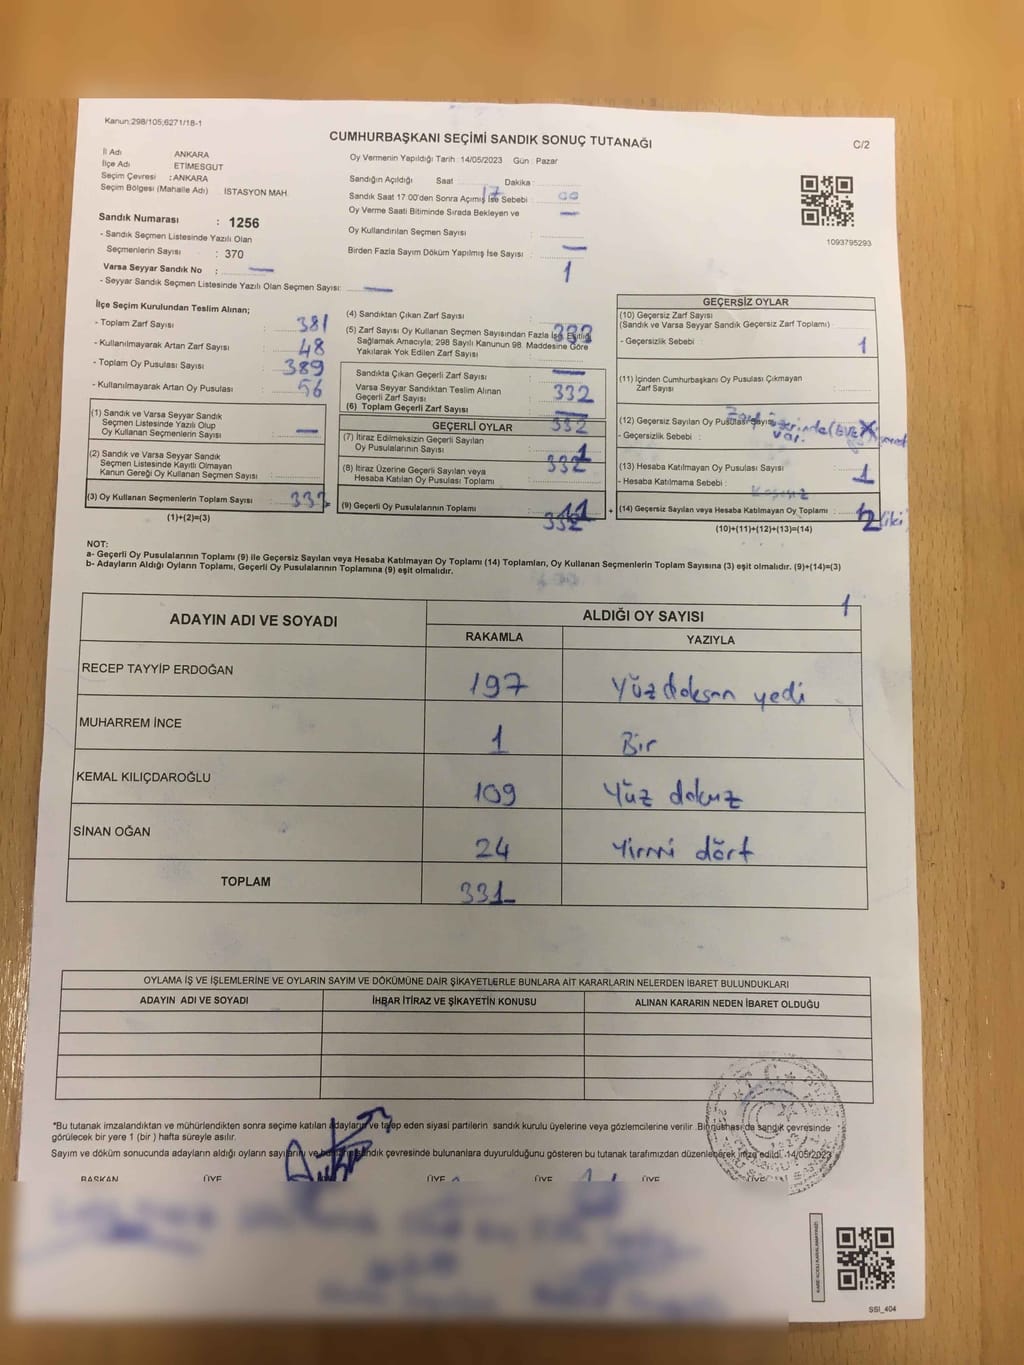 Kanun:298/105;6271/18-1
CUMHURBAŞKANI SEÇİMİ SANDIK SONUÇ TUTANAĞI
C/2
İl Adı ANKARA
İlçe Adı ETİMESGUT
Seçim Çevresi : ANKARA
Seçim Bölgesi (Mahalle Adı) İSTASYON MAH.
Oy Vermenin Yapıldığı Tarih : 14/05/2023 Gün : Pazar
Sandığın Açıldığı Saat : 17 Dakika : 00
Sandık Saat 17:00'den Sonra Açılmış İse Sebebi : —
Oy Verme Saati Bitiminde Sırada Bekleyen ve
Oy Kullandırılan Seçmen Sayısı : —
Birden Fazla Sayım Döküm Yapılmış İse Sayısı : 1
1093795293
Sandık Numarası : 1256
- Sandık Seçmen Listesinde Yazılı Olan
Seçmenlerin Sayısı : 370
Varsa Seyyar Sandık No : —
- Seyyar Sandık Seçmen Listesinde Yazılı Olan Seçmen Sayısı: —
İlçe Seçim Kurulundan Teslim Alınan;
- Toplam Zarf Sayısı : 381
- Kullanılmayarak Artan Zarf Sayısı : 48
- Toplam Oy Pusulası Sayısı : 389
- Kullanılmayarak Artan Oy Pusulası : 56
(1) Sandık ve Varsa Seyyar Sandık
Seçmen Listesinde Yazılı Olup
Oy Kullanan Seçmenlerin Sayısı : —
(2) Sandık ve Varsa Seyyar Sandık
Seçmen Listesinde Kayıtlı Olmayan
Kanun Gereği Oy Kullanan Seçmen Sayısı :
(3) Oy Kullanan Seçmenlerin Toplam Sayısı : 333
(1)+(2)=(3)
(4) Sandıktan Çıkan Zarf Sayısı : 333
(5) Zarf Sayısı Oy Kullanan Seçmen Sayısından Fazla İse, Eşitliği
Sağlamak Amacıyla; 298 Sayılı Kanunun 98. Maddesine Göre
Yakılarak Yok Edilen Zarf Sayısı : —
Sandıkta Çıkan Geçerli Zarf Sayısı : 332
Varsa Seyyar Sandıktan Teslim Alınan
Geçerli Zarf Sayısı : —
(6) Toplam Geçerli Zarf Sayısı : 332
GEÇERLİ OYLAR
(7) İtiraz Edilmeksizin Geçerli Sayılan
Oy Pusulalarının Sayısı : 332
(8) İtiraz Üzerine Geçerli Sayılan veya
Hesaba Katılan Oy Pusulası Toplamı :
(9) Geçerli Oy Pusulalarının Toplamı : 332
GEÇERSİZ OYLAR
(10) Geçersiz Zarf Sayısı
(Sandık ve Varsa Seyyar Sandık Geçersiz Zarf Toplamı) : 1
- Geçersizlik Sebebi : Zarf üzerinde (EVET) var.
(11) İçinden Cumhurbaşkanı Oy Pusulası Çıkmayan
Zarf Sayısı :
(12) Geçersiz Sayılan Oy Pusulası Sayısı : 1
- Geçersizlik Sebebi :
(13) Hesaba Katılmayan Oy Pusulası Sayısı :
- Hesaba Katılmama Sebebi :
(14) Geçersiz Sayılan veya Hesaba Katılmayan Oy Toplamı : 2 (iki)
(10)+(11)+(12)+(13)=(14)
NOT:
a- Geçerli Oy Pusulalarının Toplamı (9) ile Geçersiz Sayılan veya Hesaba Katılmayan Oy Toplamı (14) Toplamları, Oy Kullanan Seçmenlerin Toplam Sayısına (3) eşit olmalıdır. (9)+(14)=(3)
b- Adayların Aldığı Oyların Toplamı, Geçerli Oy Pusulalarının Toplamına (9) eşit olmalıdır.
ADAYIN ADI VE SOYADI ALDIĞI OY SAYISI
RAKAMLA YAZIYLA
RECEP TAYYİP ERDOĞAN 197 Yüzdoksan yedi
MUHARREM İNCE 1 Bir
KEMAL KILIÇDAROĞLU 109 Yüz dokuz
SİNAN OĞAN 24 Yirmi dört
TOPLAM 331
OYLAMA İŞ VE İŞLEMLERİNE VE OYLARIN SAYIM VE DÖKÜMÜNE DAİR ŞİKAYETLERLE BUNLARA AİT KARARLARIN NELERDEN İBARET BULUNDUKLARI
ADAYIN ADI VE SOYADI İHBAR İTİRAZ VE ŞİKAYETİN KONUSU ALINAN KARARIN NEDEN İBARET OLDUĞU
*Bu tutanak imzalandıktan ve mühürlendikten sonra seçime katılan adayların ve talep eden siyasi partilerin sandık kurulu üyelerine veya gözlemcilerine verilir. Bir nüshası da sandık çevresinde
görülecek bir yere 1 (bir) hafta süreyle asılır.
Sayım ve döküm sonucunda adayların aldığı oyların sayılarını ve bunların sandık çevresinde bulunanlara duyurulduğunu gösteren bu tutanak tarafımızdan düzenlenerek imza edildi. 14/05/2023
BAŞKAN ÜYE ÜYE ÜYE ÜYE
SSI_404